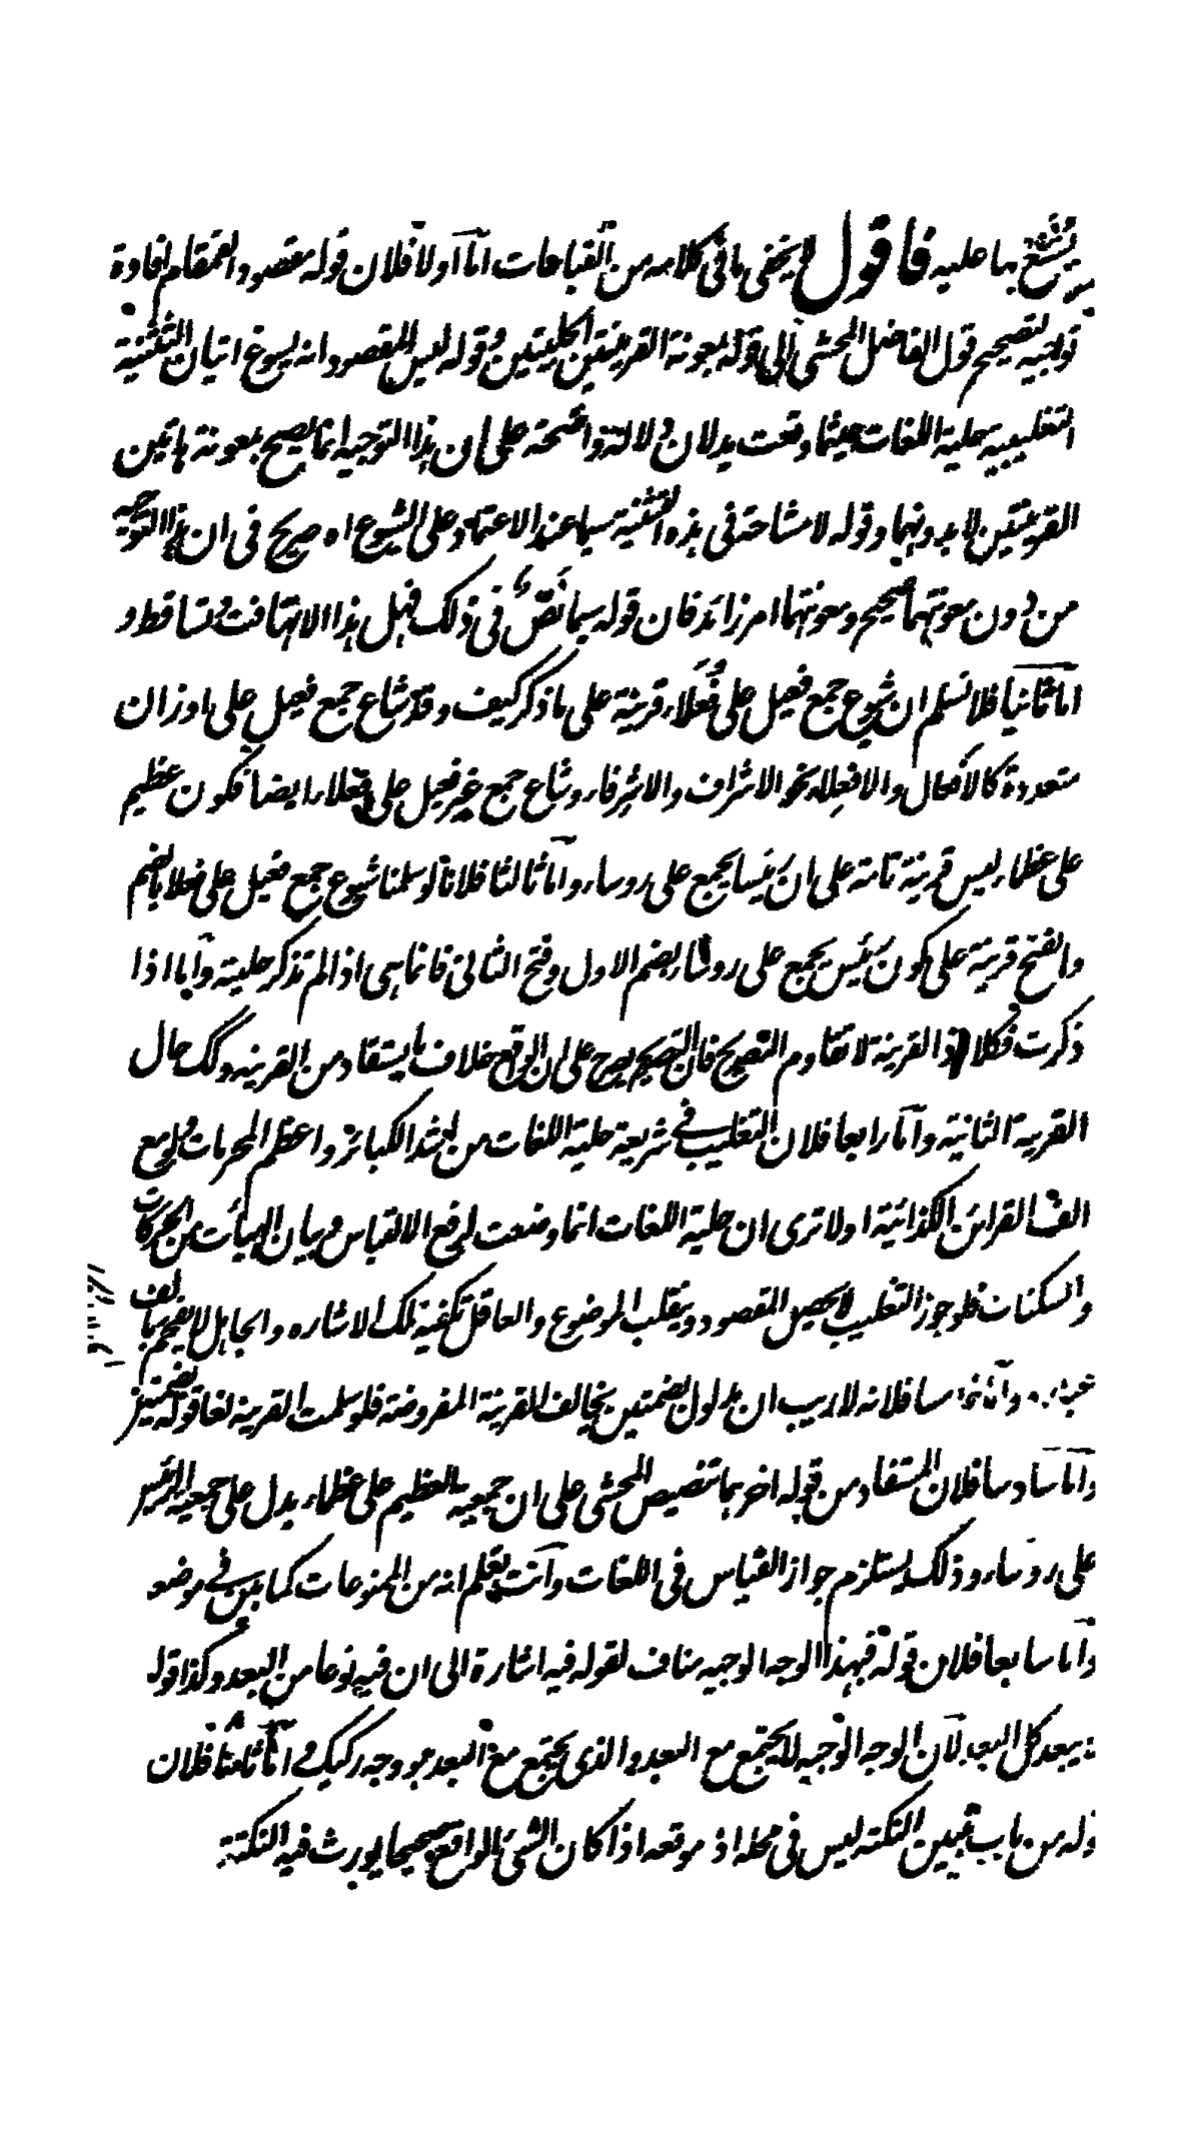 يشنع بها عليه فاقول لا يخفى ما فى كلامه من القباحات اما اولا فلان قوله مقصود القمقام افادة
توجيه لتصحيح قول الفاضل المحشى الى قوله بمعونة القرينتين الجليتين وقوله ليس المقصود انه يسوغ اتيان التثنية
التغليبية حلية اللغات حيثما وقعت يدلان دلالة واضحة على ان هذا التوجيه انما يصح بمعونة هاتين
القرينتين لا بدونهما وقوله لا مشاحة فى هذه التثنية سيما عند الاعتماد على الشيوع اه صريح فى ان هذا التوجيه
من دون معونتهما صحيح ومعونتهما امر زائد فان قوله سيما نص فى ذلك فهل هذا الا تهافت وتساقط و
اما ثانيا فلا نسلم ان شيوع جمع فعيل على فعلاء قرينة على ما ذكر كيف وقد شاع جمع فعيل على اوزان
متعددة كالافعال والافعلاء نحو الاشراف والاشرفاء وشاع جمع غير فعيل على فعلاء ايضا فكون عظيم
على عظماء ليس قرينة تامة على ان رئيسا يجمع على روساء واما ثالثا فلانا لو سلمنا شيوع جمع فعيل على فعلاء بالضم
والفتح قرينة على كون رئيس يجمع على روساء بضم الاول وفتح الثانى فانما هى اذا لم تذكر حلية واما اذا
ذكرت فكلا اذ القرينة لا تقاوم التصريح فان التصريح يدل على ان الواقع خلاف ما يستفاد من القرينة وذلك حال
القرينة الثانية واما رابعا فلان التغليب فى شريعة حلية اللغات من اشد الكبائر واعظم المحرمات ولو مع
الف القرائن الكذائية اولا ترى ان حلية اللغات انما وضعت لرفع الالتباس وبيان الهيأت من الحركات
والسكنات فلو جوز التغليب لا يحصل المقصود وينقلب الموضوع والعاقل تكفيه تلك الاشاره والجاهل لا يفهم بالف
واما خامسا فلانه لا ريب ان مدلول بضمتين يخالف القرينة المفروضة فلو سلمت القرينة لغا قوله بضمتين
واما سادسا فلان المستفاد من قوله اخر بما تنصيص المحشى على ان جمعية العظيم على عظماء يدل على جمعية الرئيس
على روساء وذلك يستلزم جواز القياس فى اللغات وانت تعلم انه من الممنوعات كما بين فى موضعه
واما سابعا فلان قوله فهذا الوجه الوجيه مناف لقوله فيه اشارة الى ان فيه نوعا من البعد وكذا قوله
يبعد كل البعد لان الوجه الوجيه لا يجتمع مع البعد والذى يجتمع مع البعد هو وجه ركيك واما ثامنا فلان
قوله من باب تبيين النكتة ليس فى محله اذ موقعه اذا كان الشئ الواقع صحيحا يورث فيه النكتة